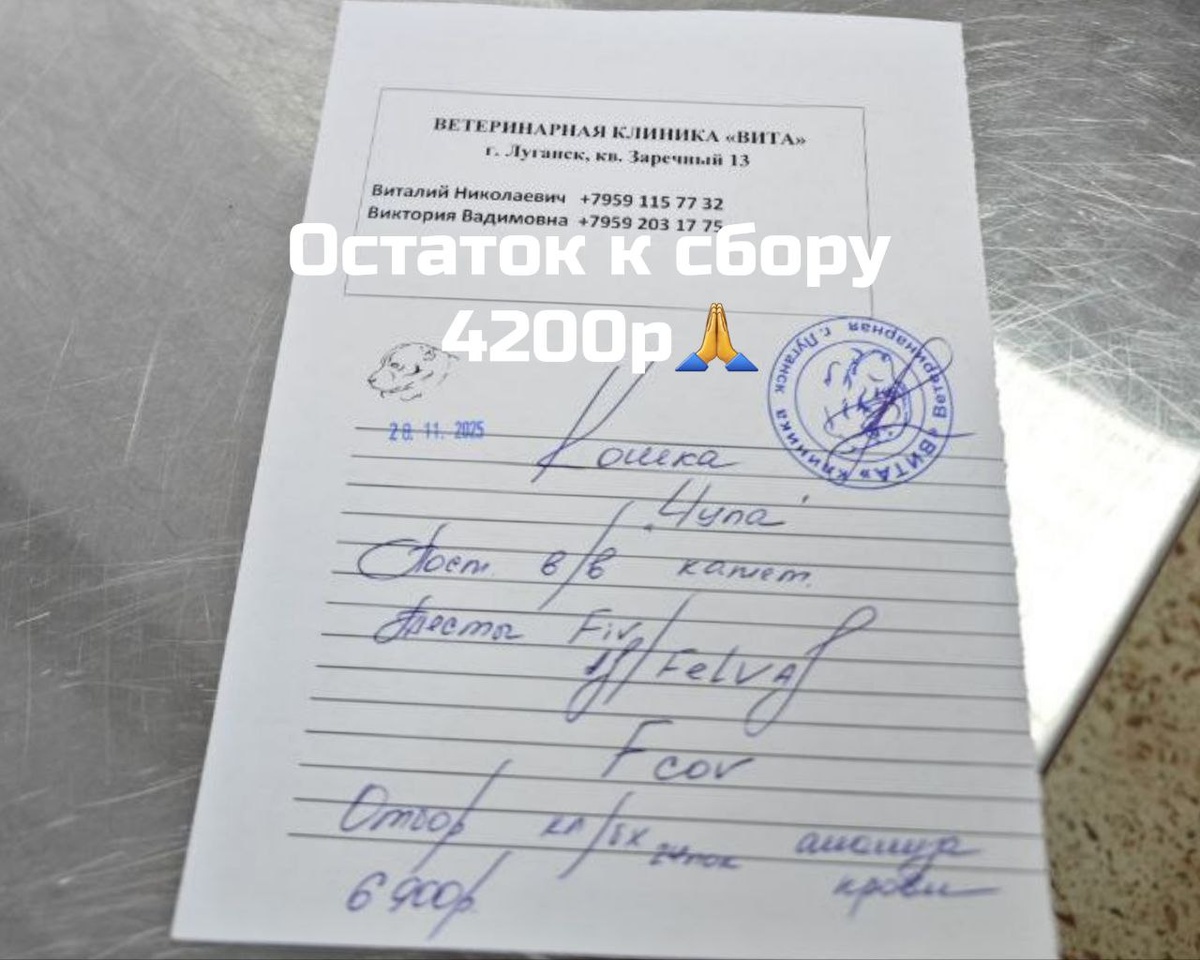 ВЕТЕРИНАРНАЯ КЛИНИКА «ВИТА»
г. Луганск, кв. Заречный 13
Виталий Николаевич +7959 115 77 32
Виктория Вадимовна +7959 203 17 75
Остаток к сбору
4200р🙏
Ветеринарная клиника «ВИТА» г. Луганск
28. 11. 2025
Кошка
"Чупа"
Пост. в/в катет.
Тесты Fiv/
FelVAg
Fcov
Отбор кл/бх анализа
крови
6900р